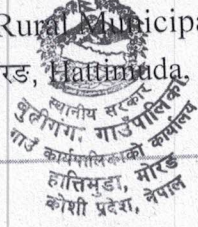 Rural Municipa
रङ, Hattimuda,
स्थानीय सरकार
बुढीगंगा गाउँपालिका
गाउँ कार्यपालिकाको कार्यालय
हात्तिमुडा, मोरङ
कोशी प्रदेश, नेपाल